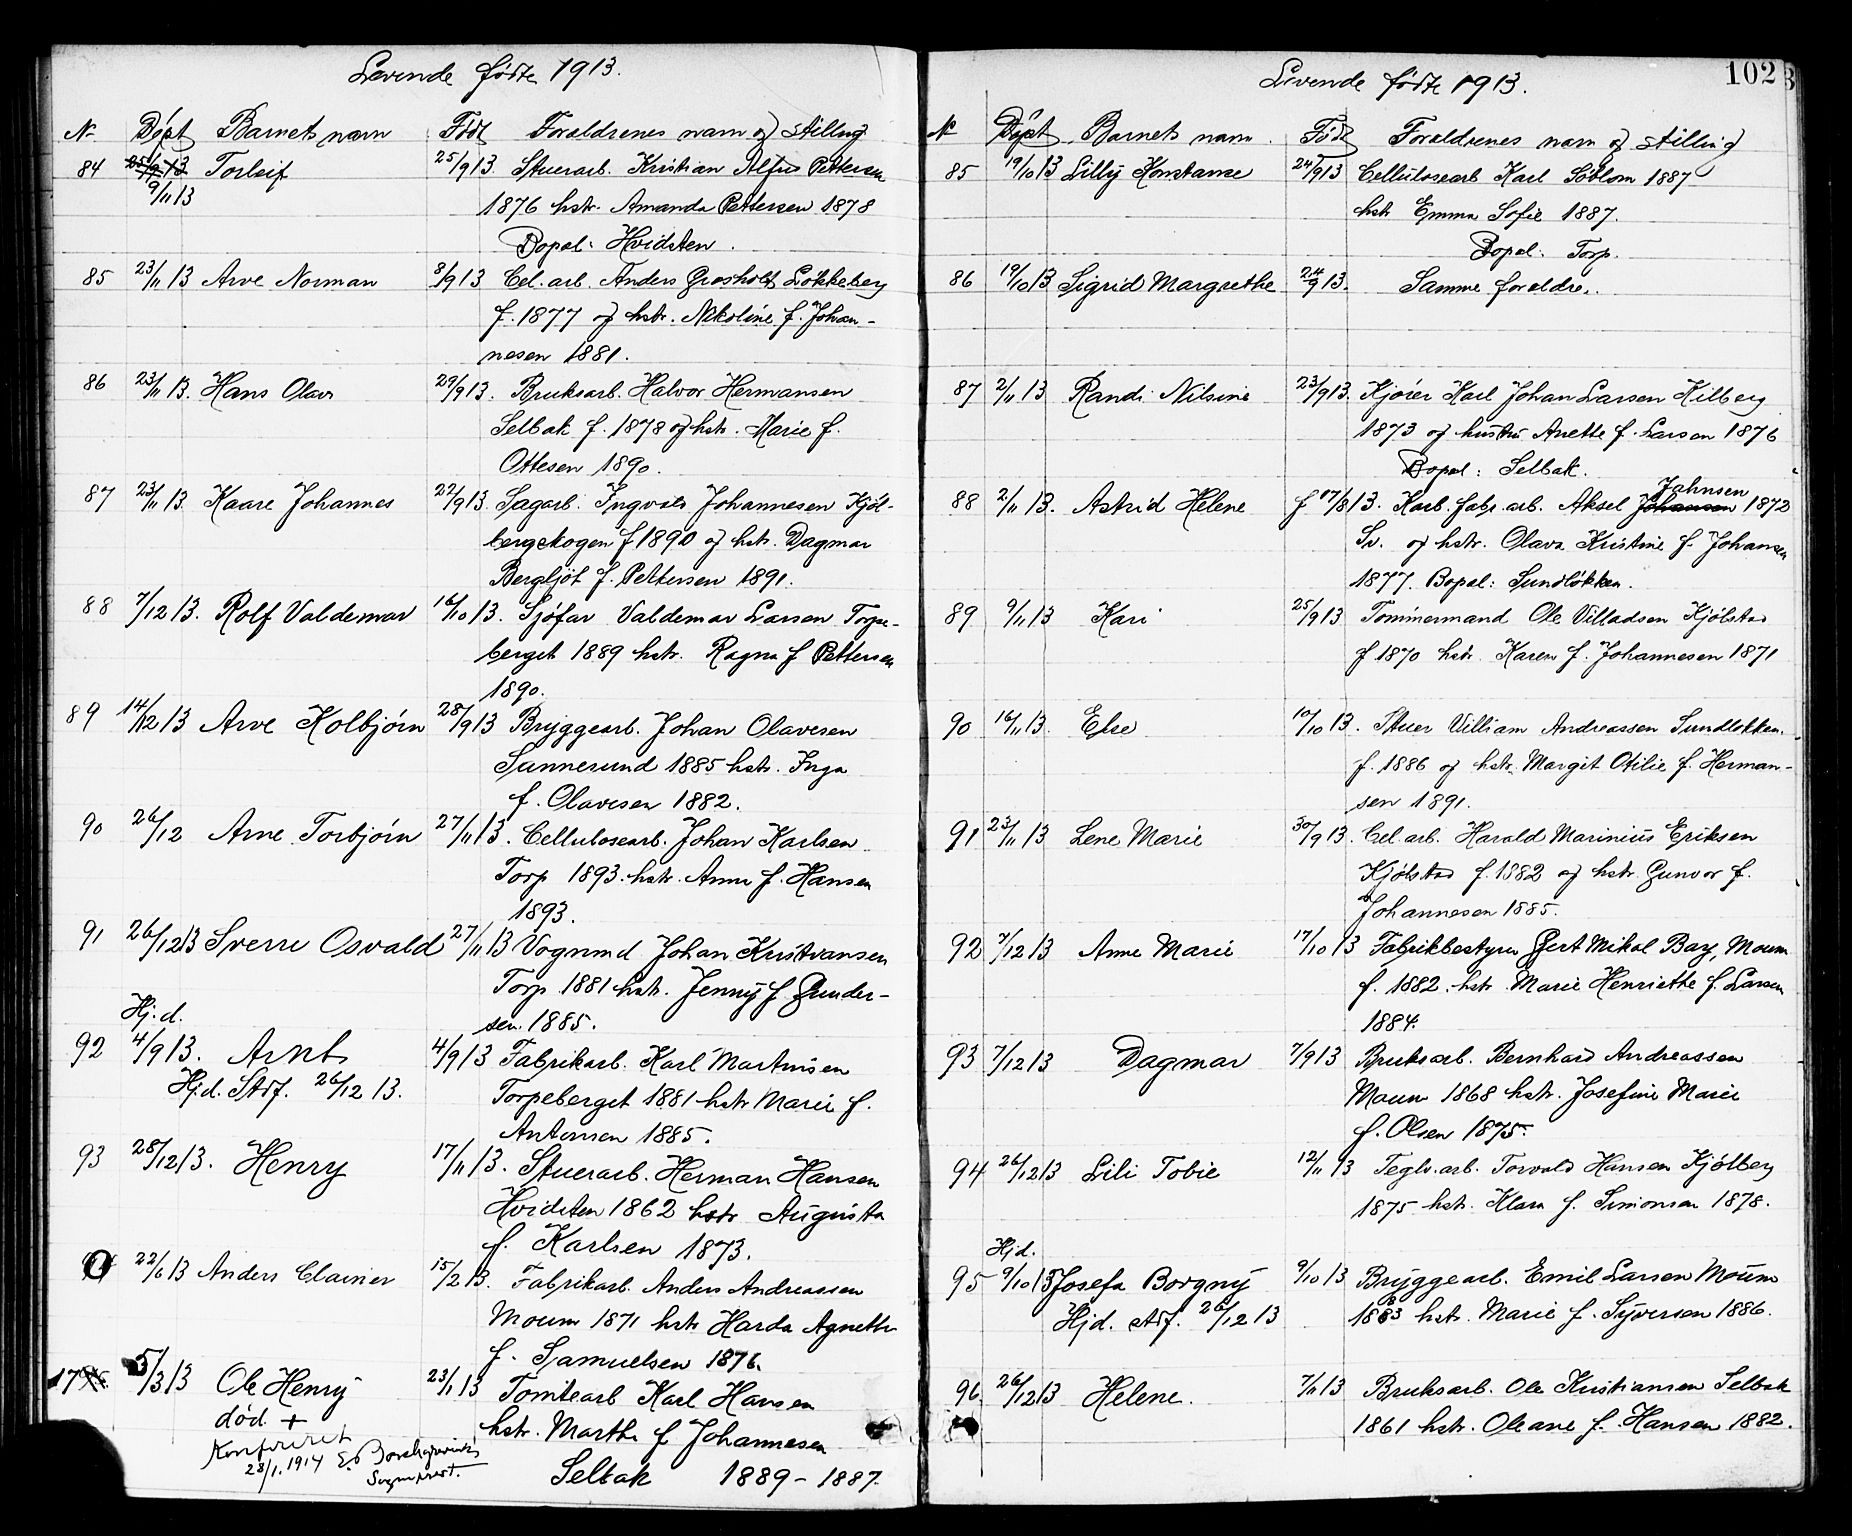 Levende fødte 1913.
No Døpt Barnets navn Født Foraldrenes navn og stilling
84 25/9 13 Torleif 25/9 13 Stuerarb. Kristian Alfred Pettersen
9/11 13 1876 hstr. Amanda Pettersen 1878
Bopæl: Hvidsten.
85 23/11 13 Arve Norman 8/9 13 Cel. arb. Anders Grosholt Løkkeberg
f. 1877 og hstr. Nikoline f. Johan-
nesen 1881.
86 23/11 13. Hans Olav 29/9 13. Bruksarb. Halvor Hermansen
Selbak f. 1878 og hstr. Marie f.
Ottesen 1890.
87 23/11 13. Kaare Johannes 22/9 13. Sagarb. Ingvald Johannesen Kjøl-
bergskogen f 1890 og hstr. Dagmar
Bergljót f. Pettersen 1891.
88 7/12 13. Rolf Valdemar 16/10 13. Sjøfar Valdemar Larsen Torpe-
berget 1889 hstr. Ragna f Pettersen
1890.
89 14/12 13 Arve Kolbjørn 28/9 13 Bryggearb. Johan Olavesen
Sannesund 1885 hstr. Inga
f. Olavesen 1882.
90 26/12 Arne Torbjørn 27/11 13. Cellulosearb. Johan Karlsen
Torp 1893. hstr. Anna f. Hansen
1893.
91 26/12 13 Sverre Osvald 27/11 13 Vognmd Johan Kristiansen
Torp 1881 hstr. Jenny f Gunder-
sen 1885.
Hj. d.
92 4/9 13. Arnt 4/9 13 Fabrikarb. Karl Martinsen
Hj.d. Stdf. 26/12 13. Torpeberget 1881 hstr Marie f.
Antonsen 1885.
93 28/12 13. Henry 17/11 13. Stuerarb. Herman Hansen
Hvidsten 1862 hstr Augusta
f. Karlsen 1873.
0 22/6 13 Anders Clainer 15/2 13. Fabrikarb. Anders Andreassen
Moum 1871 hstr Harda Agnethe
f. Samuelsen 1876.
17 5/3 13 Ole Henry 23/1 13 Tomtearb Karl Hansen
død. + hstr. Marthe f Johannesen
Konfereret
28/1. 1914 Sogneprest.
Selbak 1889 - 1887.
Levende fødte 1913. 102
No Døpt Barnets navn Født Foraldrenes navn og stilling
85 19/10 13 Lilly Konstanse 24/9 13 Cellulosearb Karl Søblom 1887
hstr Emma Sofie 1887.
Bopæl: Torp.
86 19/10 13 Sigrid Margrethe 24/9 13. Samme foraldre.
87 2/11 13 Randi Nilsine 23/9 13. Kjører Karl Johan Larsen Kilberg
1873 og hustru Anette f. Larsen 1876
Bopæl: Selbak.
Johnsen
88 2/11 13. Astrid Helene f 17/8 13. Karb. fabr. arb. Aksel Johansen 1872
Sv. og hstr. Olava Kristine f. Johansen
1877. Bopæl: Sundløkken.
89 9/11 13 Kari 25/9 13 Tømmermand Ole Villadsen Kjølstad
f 1870 hstr. Karen f. Johannesen 1871
90 16/11 13. Else 10/10 13. Stuer Villiam Andreassen Sundløkken.
f. 1886 og hstr. Margit Otilie f. Herman-
sen 1891.
91 23/11 13 Lene Marie 30/9 13. Cel. arb. Harald Marinius Eriksen
Kjølstad f. 1882 og hstr. Gunvor f.
Johannesen 1885.
92 7/12 13 Anne Marie 17/10 13 Fabrikbestyrer Gert Mikal Bay, Moum
f. 1882. hstr. Marie Henriethe f. Larsen
1884.
93 7/12 13 Dagmar 7/9 13 Bruksarb. Bernhard Andreassen
Moum 1868 hstr. Josefine Marie
f. Olsen 1875.
94 26/12 13 Lili Tobie 12/11 13 Teglv. arb. Torvald Hansen Kjølberg
1875 hstr. Klara f. Simonsen 1878.
Hjd.
95 9/10 13 Josefa Borgny 9/10 13 Bryggearb. Emil Larsen Moum
Hjd. stdf. 26/12 13 1883 hstr. Marie f. Syversen 1886.
96 26/12 13 Helene. 7/11 13 Bruksarb. Ole Kristiansen Selbak
1861 hstr. Oleane f. Hansen 1882.